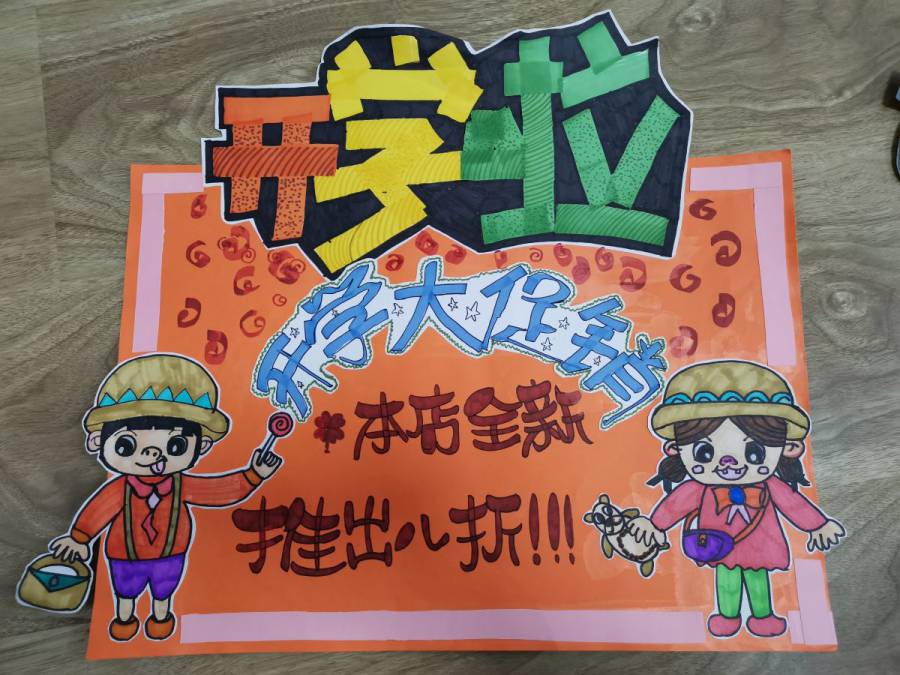 开学啦
开学大促销
本店全新
推出八折!!!